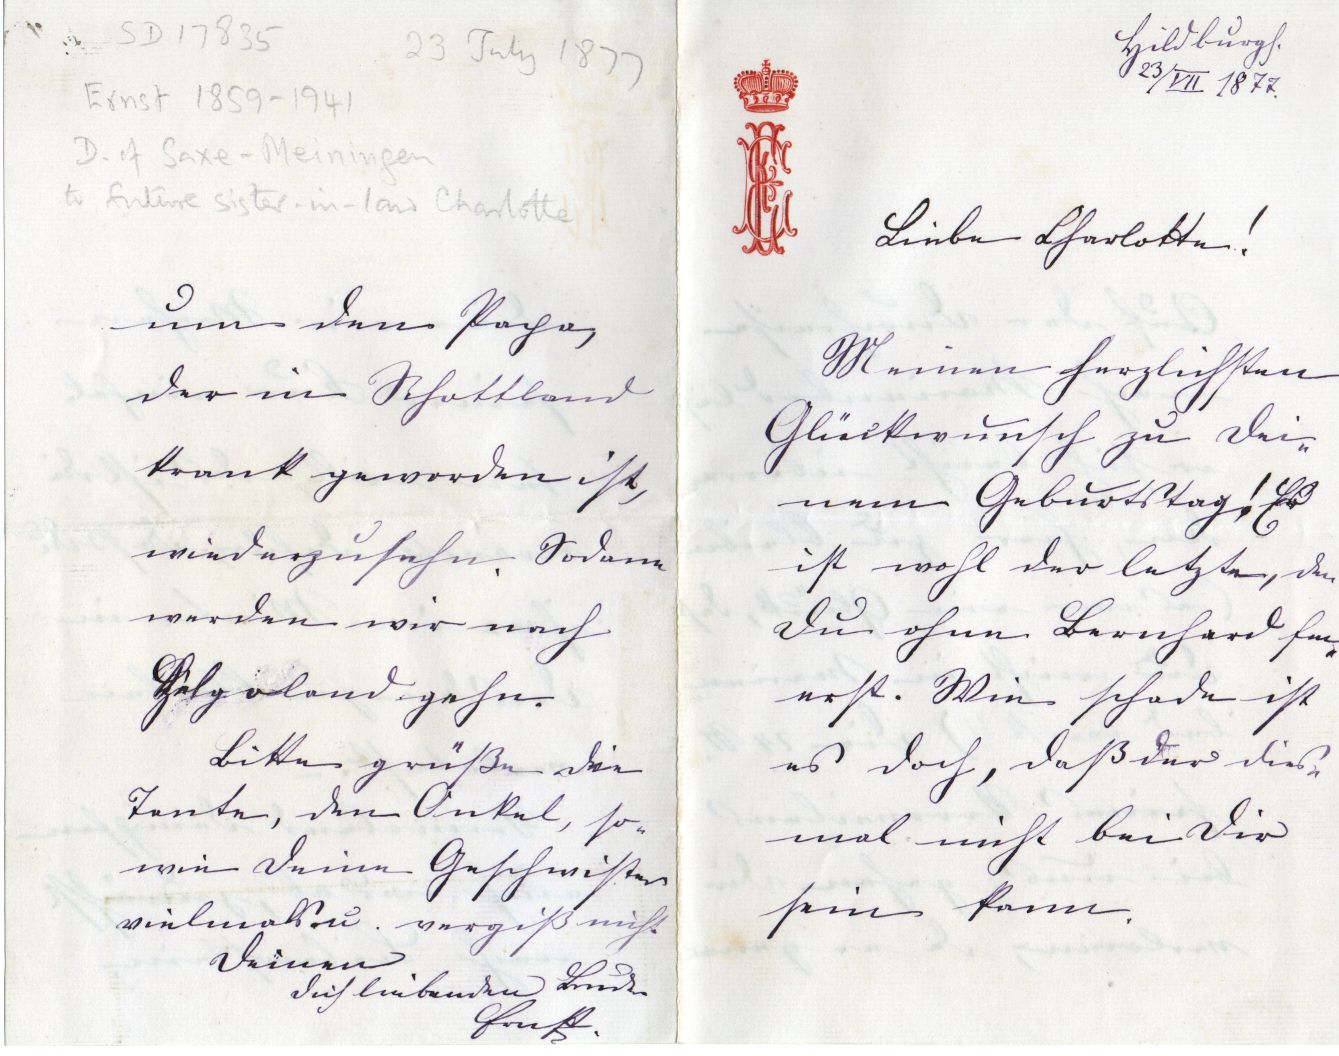 SD 17835
23 July 1877
Ernst 1859-1941
D. of Saxe-Meiningen
to future sister-in-law Charlotte
um den Papa,
der in Schottland
krank geworden ist,
wiederzusehn. Sodann
werden wir nach
Helgoland gehn.
Bitte grüße die
Tante, den Onkel, so-
wie Deine Geschwister
vielmals u. vergiß nicht
Deinen
Dich liebenden Bruder
Ernst.
Hildburgh.
23/VII 1877.
Liebe Charlotte!
Meinen herzlichsten
Glückwunsch zu Dei-
nem Geburtstag! Es
ist wohl der letzte, den
Du ohne Bernhard fei-
erst. Wie schade ist
es doch, daß der dies-
mal nicht bei Dir
sein kann.